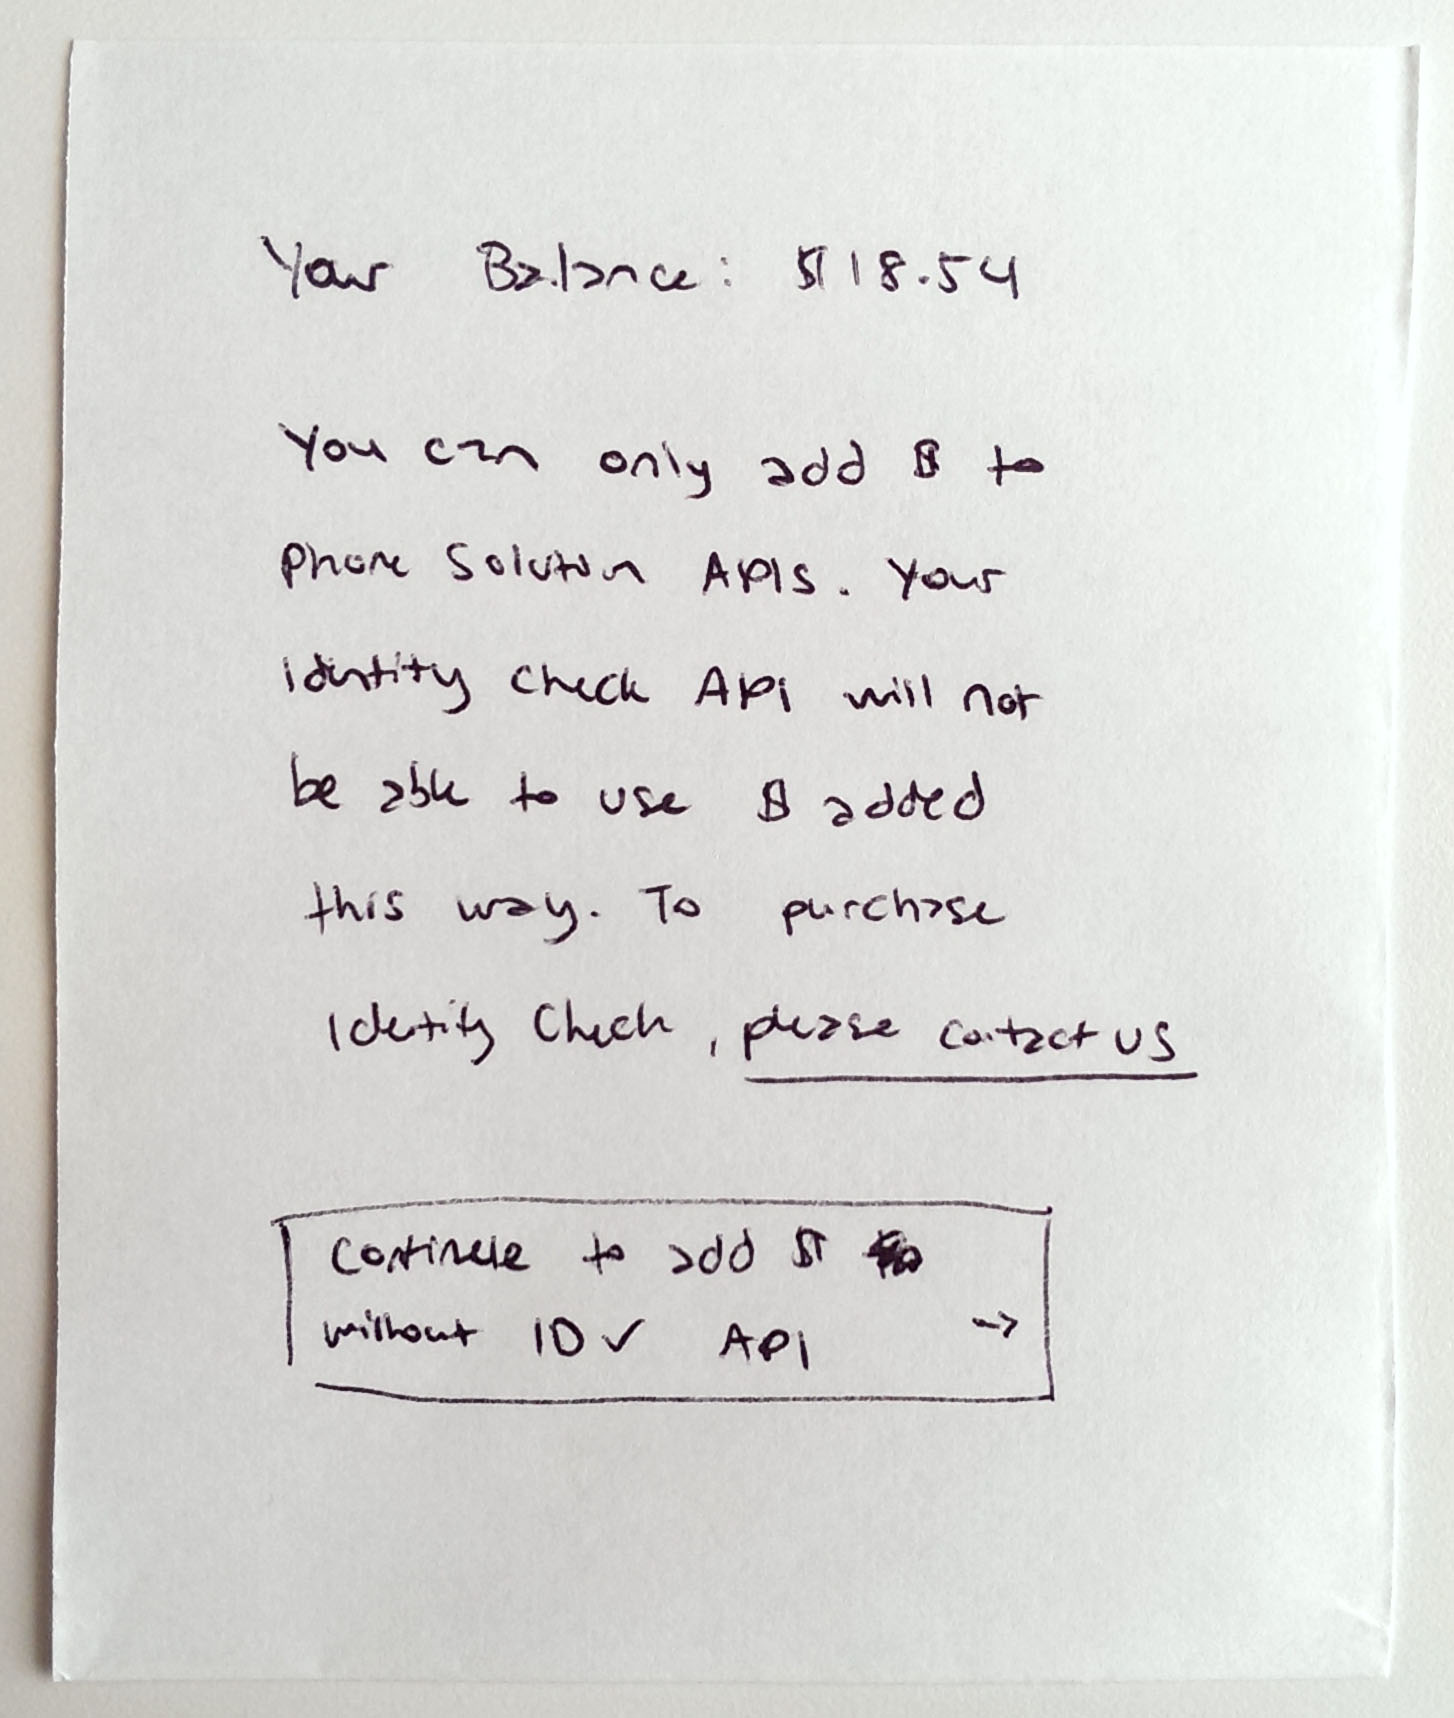 Your Balance: $18.54
You can only add $ to
Phone Solution APIs. Your
identity check API will not
be able to use $ added
this way. To purchase
Identity Check, please contact us
Continue to add $
without ID✓ API →